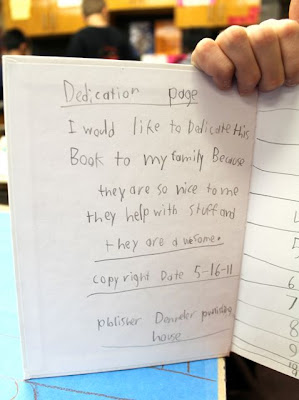 Dedication page
I would like to Dalicate this
Book to my family Because
they are so nice to me
they help with stuff and
they are awesome.
copyright Date 5-16-11
pblisher
house
6
7
8
9